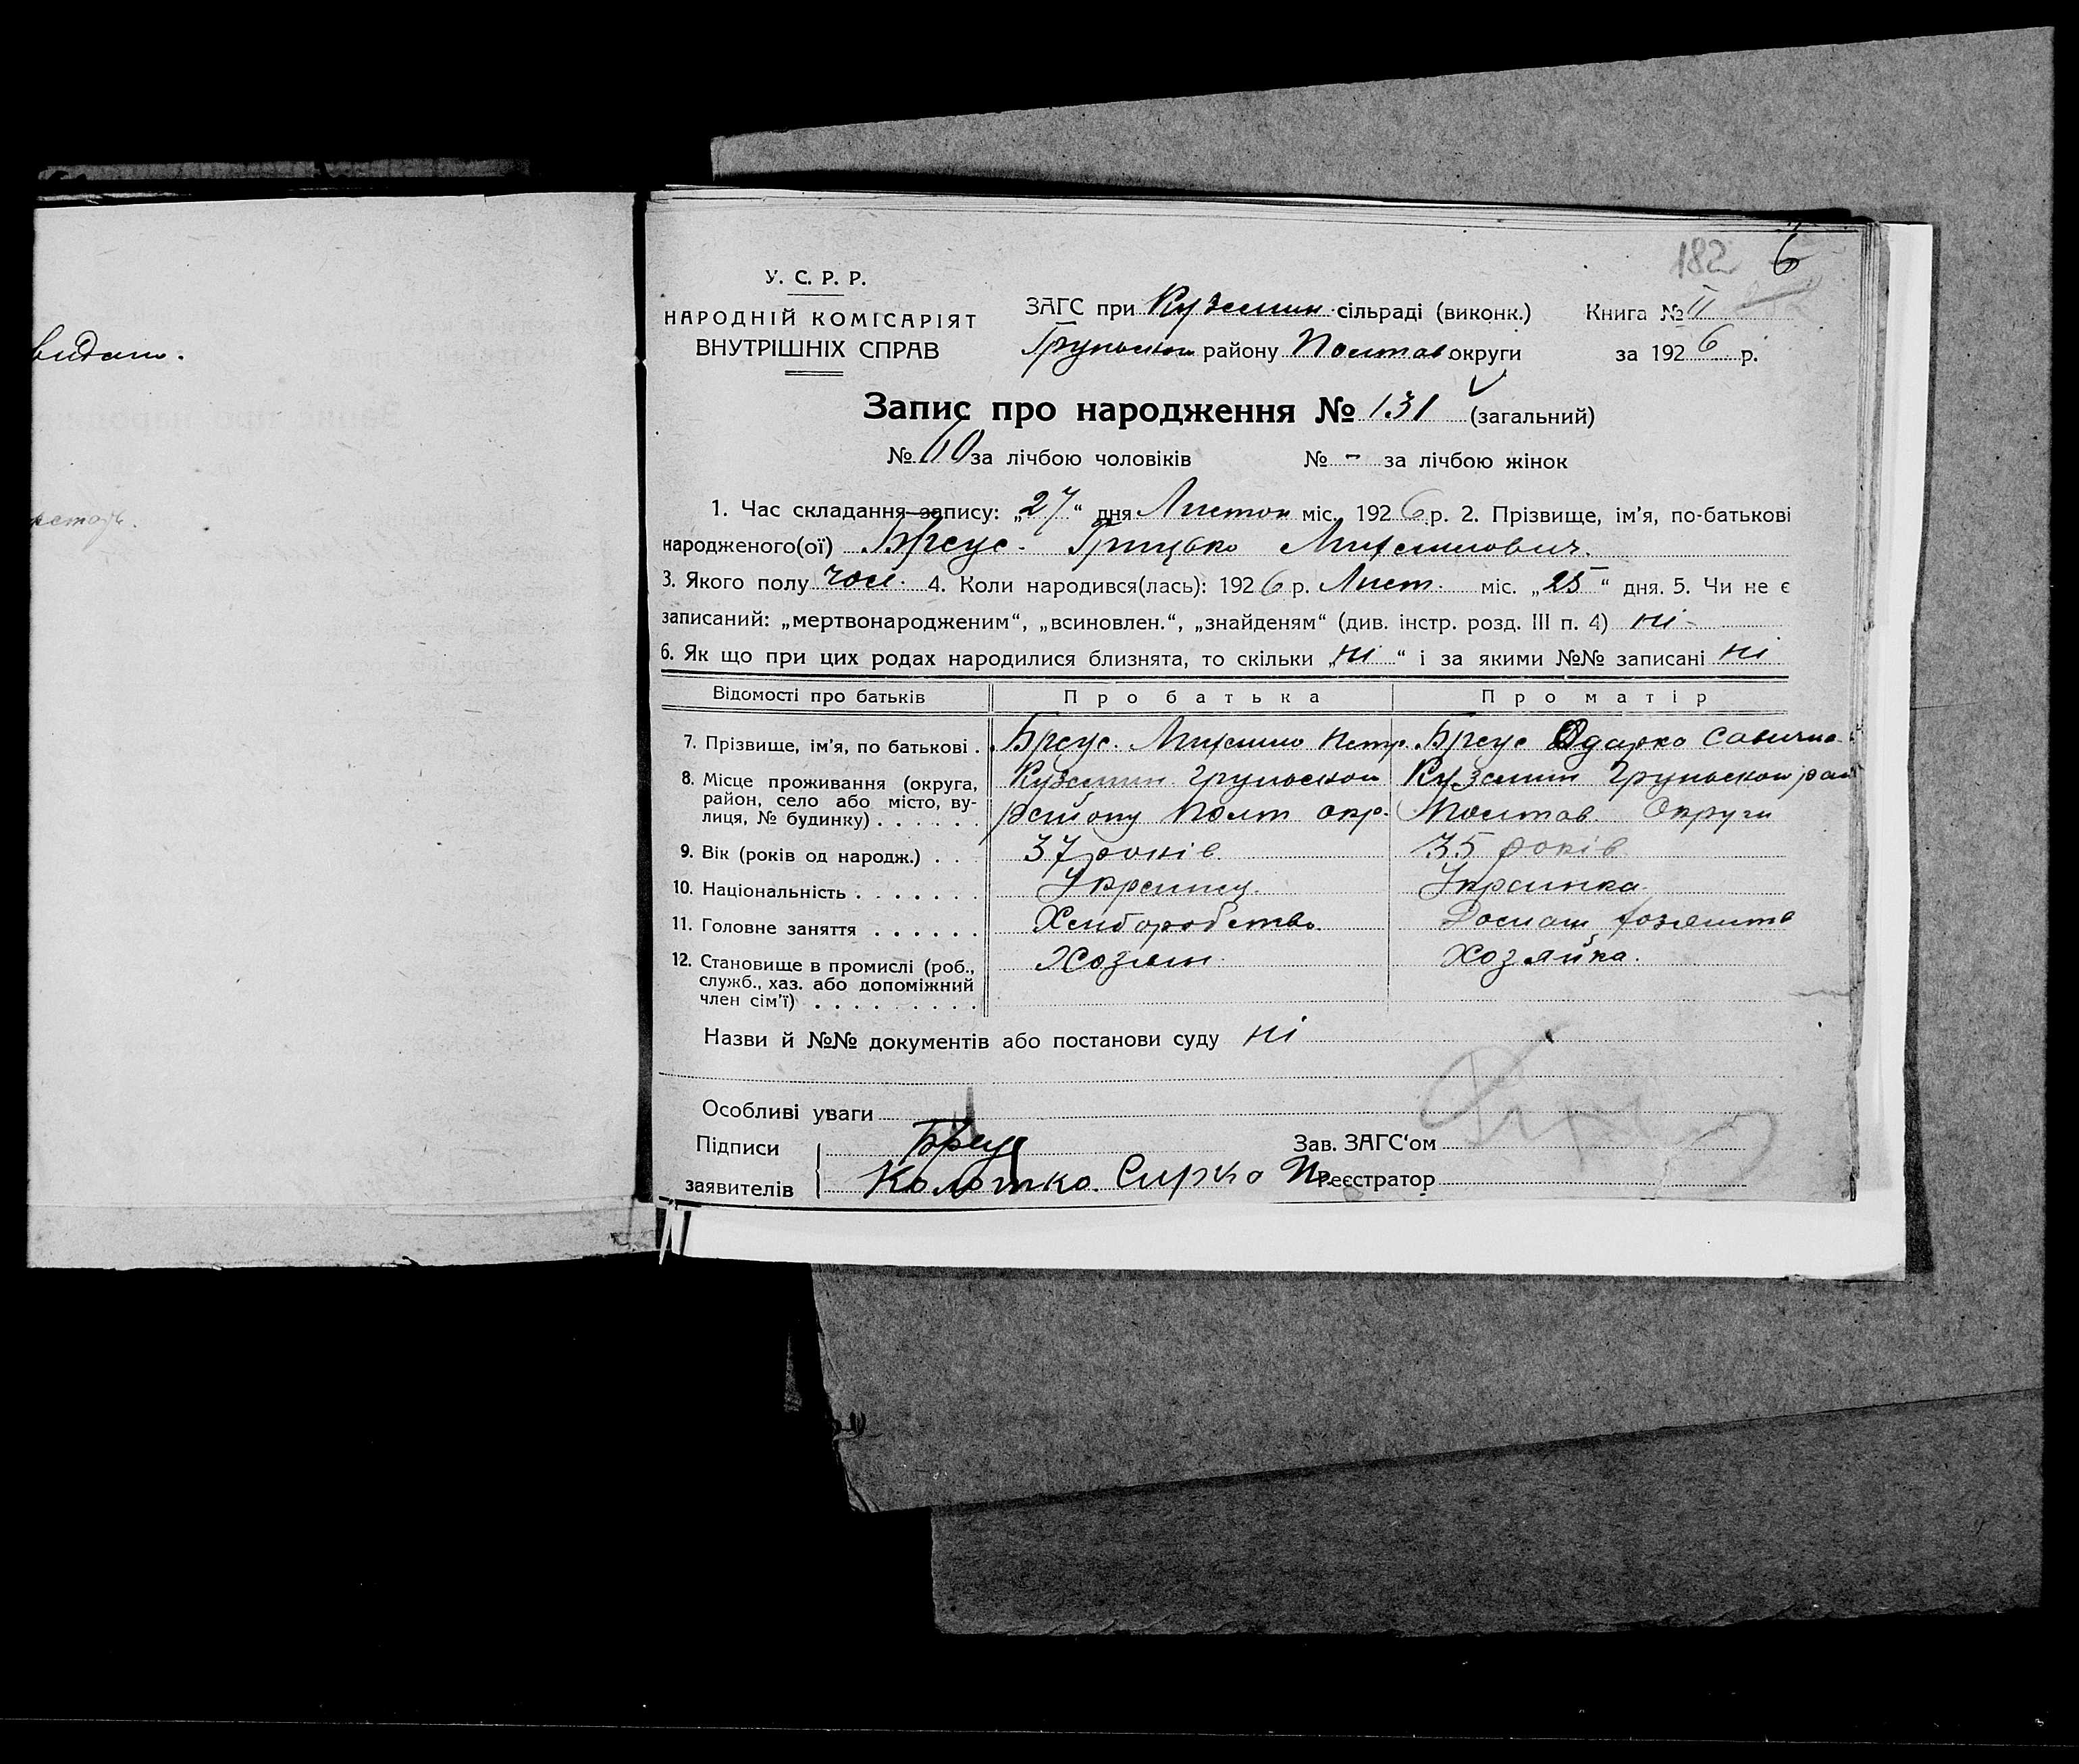 видано.
182 6
У. С. Р. Р.
НАРОДНІЙ КОМІСАРІЯТ
ВНУТРІШНІХ СПРАВ
ЗАГС при Куземин. сільраді (виконк.)
Книга № II
Груньском району Полтав. округи
за 1926 р.
Запис про народження № 131 (загальний)
№ 60 за лічбою чоловіків № - за лічбою жінок
1. Час складання запису: „27“ дня Листоп міс. 1926 р. 2. Прізвище, ім'я, по-батькові
народженого(ої) Бреус. Грицько Михайлович.
3. Якого полу чол. 4. Коли народився(лась): 1926 р. Лист. міс. „25“ дня. 5. Чи не є
записаний: „мертвонародженим“, „всиновлен.“, „знайденям“ (див. інстр. розд. III п. 4) ні -
6. Як що при цих родах народилися близнята, то скільки „ні“ і за якими №№ записані ні
Відомості про батьків Про батька Про матір
7. Прізвище, ім'я, по батькові . Бреус. Михайло Петр. Бреус Одарка Савична
8. Місце проживання (округа, Куземин. Груньском Куземин Груньском рай
район, село або місто, ву-
лиця, № будинку) . . . . . . району Полт окр. Полтав. Округи
9. Вік (років од народж.) . . 37 років 35 років
10. Національність . . . . . . . Українц. Українка.
11. Головне заняття . . . . . . Хліборобство. Домаш хозяйств
12. Становище в промислі (роб., Хозяин. Хозяйка.
служб., хаз. або допоміжний
член сім'ї) . . . . . . . . .
Назви й №№ документів або постанови суду ні
Особливі уваги
Підписи Бреус Зав. ЗАГС'ом
заявителів Колотко. Сирко П. Реєстратор